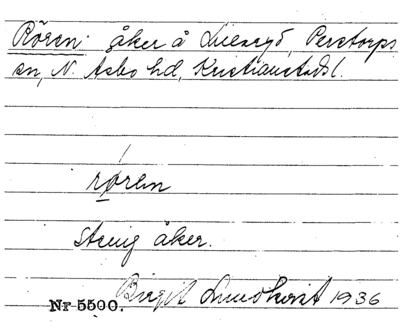 Rören: åker å Lillaryd, Perstorps
sn, N. Åsbo hd, Kristianstads l.
røren
Stenig åker.
Nr 5500. Birgit Lundkvist 1936